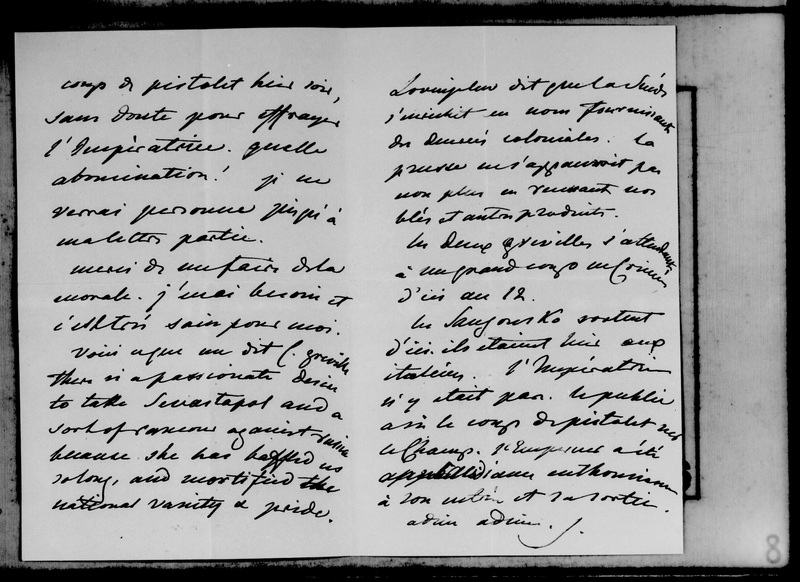 coup de pistolet hier soir,
sans doute pour effrayer
l'Impératrice. quelle
abomination! je ne
verrai personne jusqu'à
ma lettre partie.
merci de me faire de la
morale. j'en ai besoin et
c'est très sain pour moi.
Voici ce que me dit C. Greville
there is a passionate desire
to take Sevastopol and a
sort of rancour against Russia
because she has baffled us
so long, and mortified the
national vanity & pride.
dit que la Suède
s'enrichit en nous fournissant
des denrées coloniales. La
prusse ne s'appauvrit pas
non plus en vendant nos
blés et autres produits.
les deux Greville s'attendent
à un grand coup en Crimée
d'ici au 12.
les Sangousko sortent
d'ici. ils étaient hier aux
italiens. l'Impératrice
n'y était pas. le public
a su le coup de pistolet
l'Empereur a été
applaudi avec enthousiasme
à son entrée et sa sortie.
adieu adieu.
8